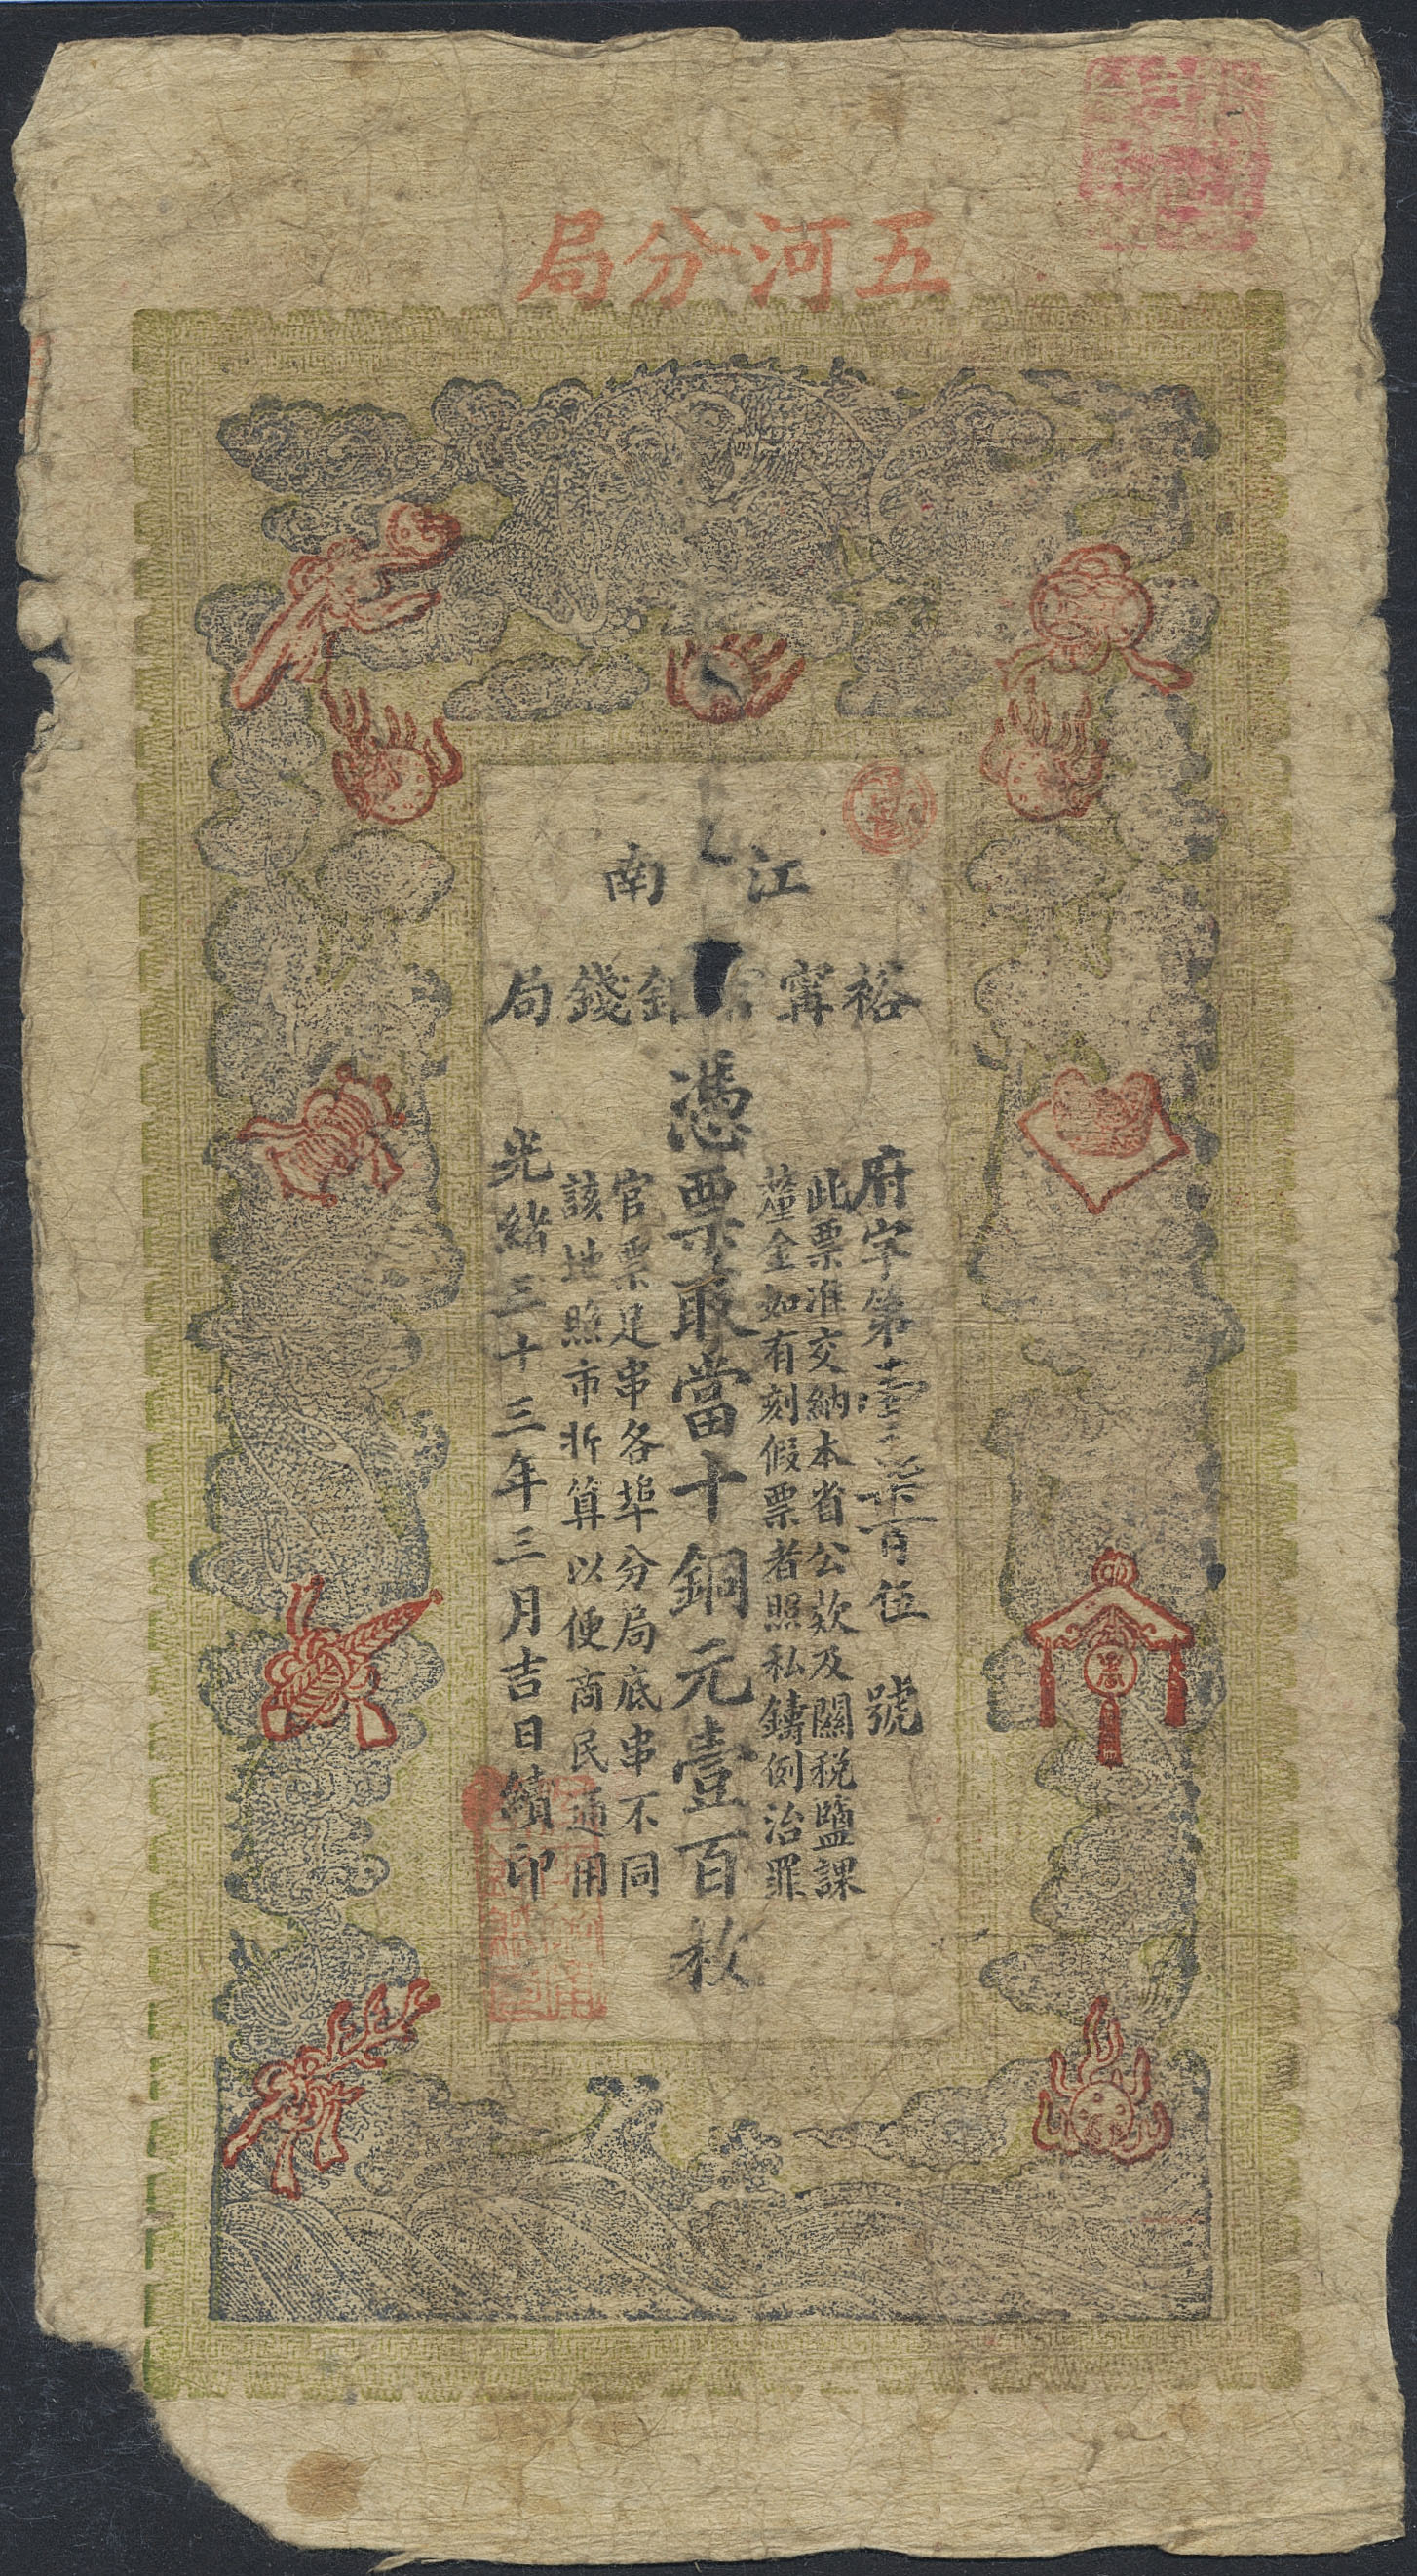 五河分局
江南
裕甯官銀錢局
府字第壹千柒百伍號
此票准交納本省公欵及關稅鹽課
釐金如有刻假票者照私鑄例治罪
憑票取當十銅元壹百枚
官票足串各埠分局底串不同
該地照市折算以便商民通用
光緒三十三年三月吉日續印